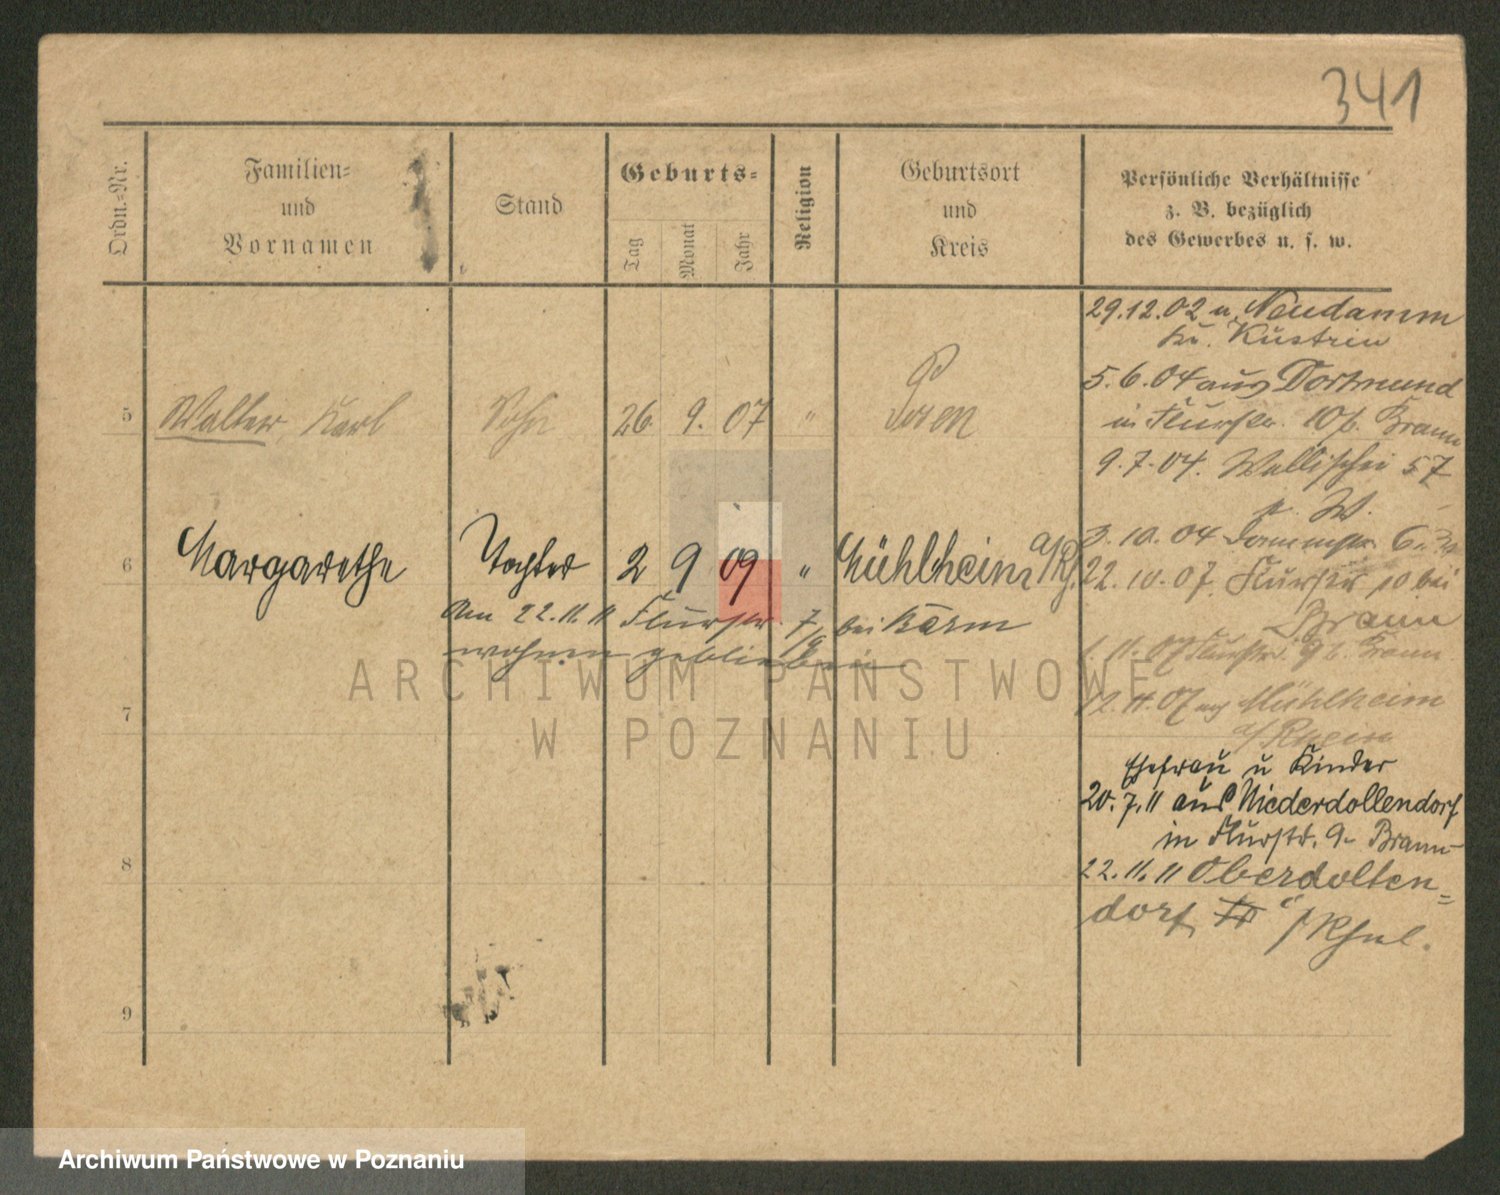 341
Ordn.-Nr.
Familien-
und
Vornamen
Stand
Geburts-
Tag
Monat
Jahr
Religion
Geburtsort
und
Kreis
Persönliche Verhältnisse
z. B. bezüglich
des Gewerbes u. s. w.
5 Walter, Karl Sohn 26. 9. 07 " Posen
6 Margarethe Tochter 2 9 09 " Mühlheim a/Rh.
Am 22.11.11 Flurstr. 7/9 bei Bärm
wohnen geblieben
7
8
9
29.12.02 n. Neudamm
Kr. Küstrin
5.6.04 aus Dortmund
in Flurstr. 10 b. Braun
9.7.04. Wallischei 57
b. W.
3.10.04 Dammstr. 6
22.10.07. Flurstr 10 bei
Braun
1.11.07 Flurstr. 9 b. Braun
12.11.07 Mühlheim
a/Rhein
Ehefrau u Kinder
20.7.11 aus Niederdollendorf
in Flurstr. 9 Braun
22.11.11 Oberdollen-
dorf
ARCHIWUM PAŃSTWOWE
W POZNANIU
Archiwum Państwowe w Poznaniu